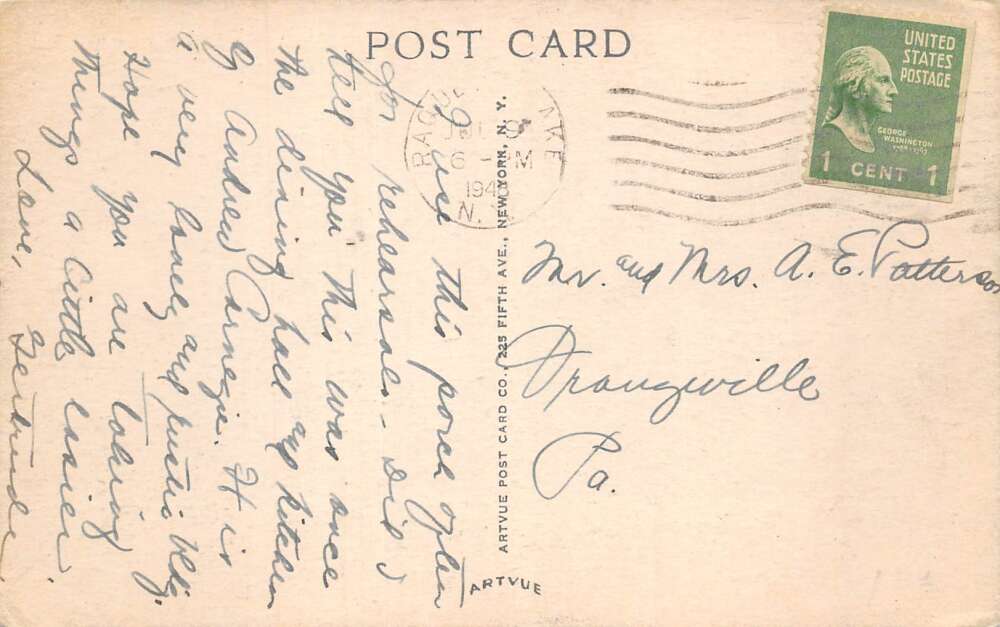 POST CARD
UNITED
STATES
POSTAGE
GEORGE
WASHINGTON
1 CENT 1
6 - PM
N.Y.
I use this porch often
for rehearsals - Did I
tell you this was once
the dining hall and kitchen
of Andrew Carnegie. It is
a very lovely and rustic bldg.
Hope you are taking
things a little easier.
Love, Gertrude.
ARTVUE POST CARD CO., 225 FIFTH AVE., NEW YORK, N. Y.
ARTVUE
Mr. and Mrs. A. E. Patterson
Orangeville
Pa.